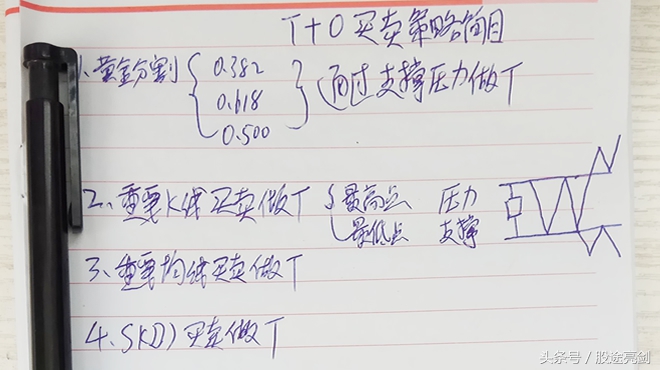 T+0买卖策略简目
1、黄金分割 { 0.382 } 通过支撑压力做T
0.618
0.500
2、重要K线买卖做T { 最高点 压力
最低点 支撑
3、重要均线买卖做T
4、SKDJ买卖做T
头条号 / 股途亮剑